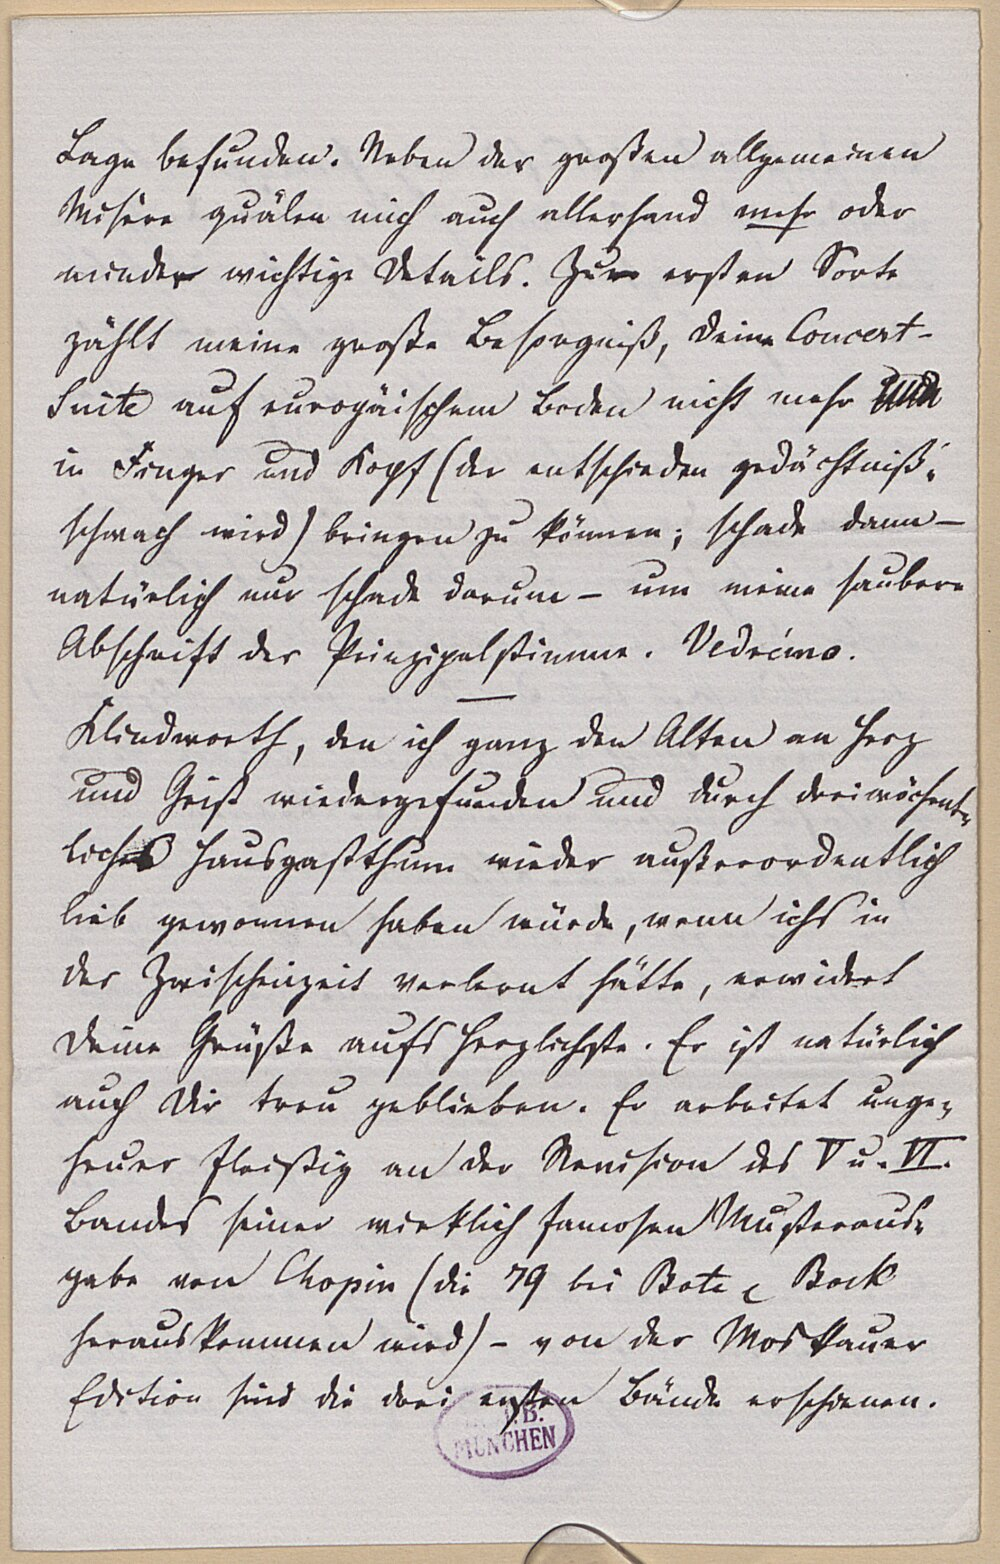 Lage befunden. Neben der großen allgemeinen
Misère quälen mich auch allerhand mehr oder
minder wichtige Details. Zur ersten Sorte
zählt meine große Besorgniß, Deine Concert-
Suite auf europäischem Boden nicht mehr
in Finger und Kopf (der entschieden gedächtniß-
schwach wird) bringen zu können; schade dann –
natürlich nur schade darum – um meine saubere
Abschrift der Prinzipalstimme. Vedremo.
Klindworth, den ich ganz den Alten an Herz
und Geist wiedergefunden und durch dreiwöchent-
liches Hausgastthum wieder außerordentlich
lieb gewonnen haben würde, wenn ichs in
der Zwischenzeit verlernt hätte, erwidert
Deine Grüße aufs Herzlichste. Er ist natürlich
auch Dir treu geblieben. Er arbeitet unge-
heuer fleißig an der Revision des V u. VI.
Bandes seiner wirklich famosen Musteraus-
gabe von Chopin (die 79 bei Bote & Bock
herauskommen wird) – von der Moskauer
Edition sind die drei ersten Bände erschienen.
.B.
MÜNCHEN